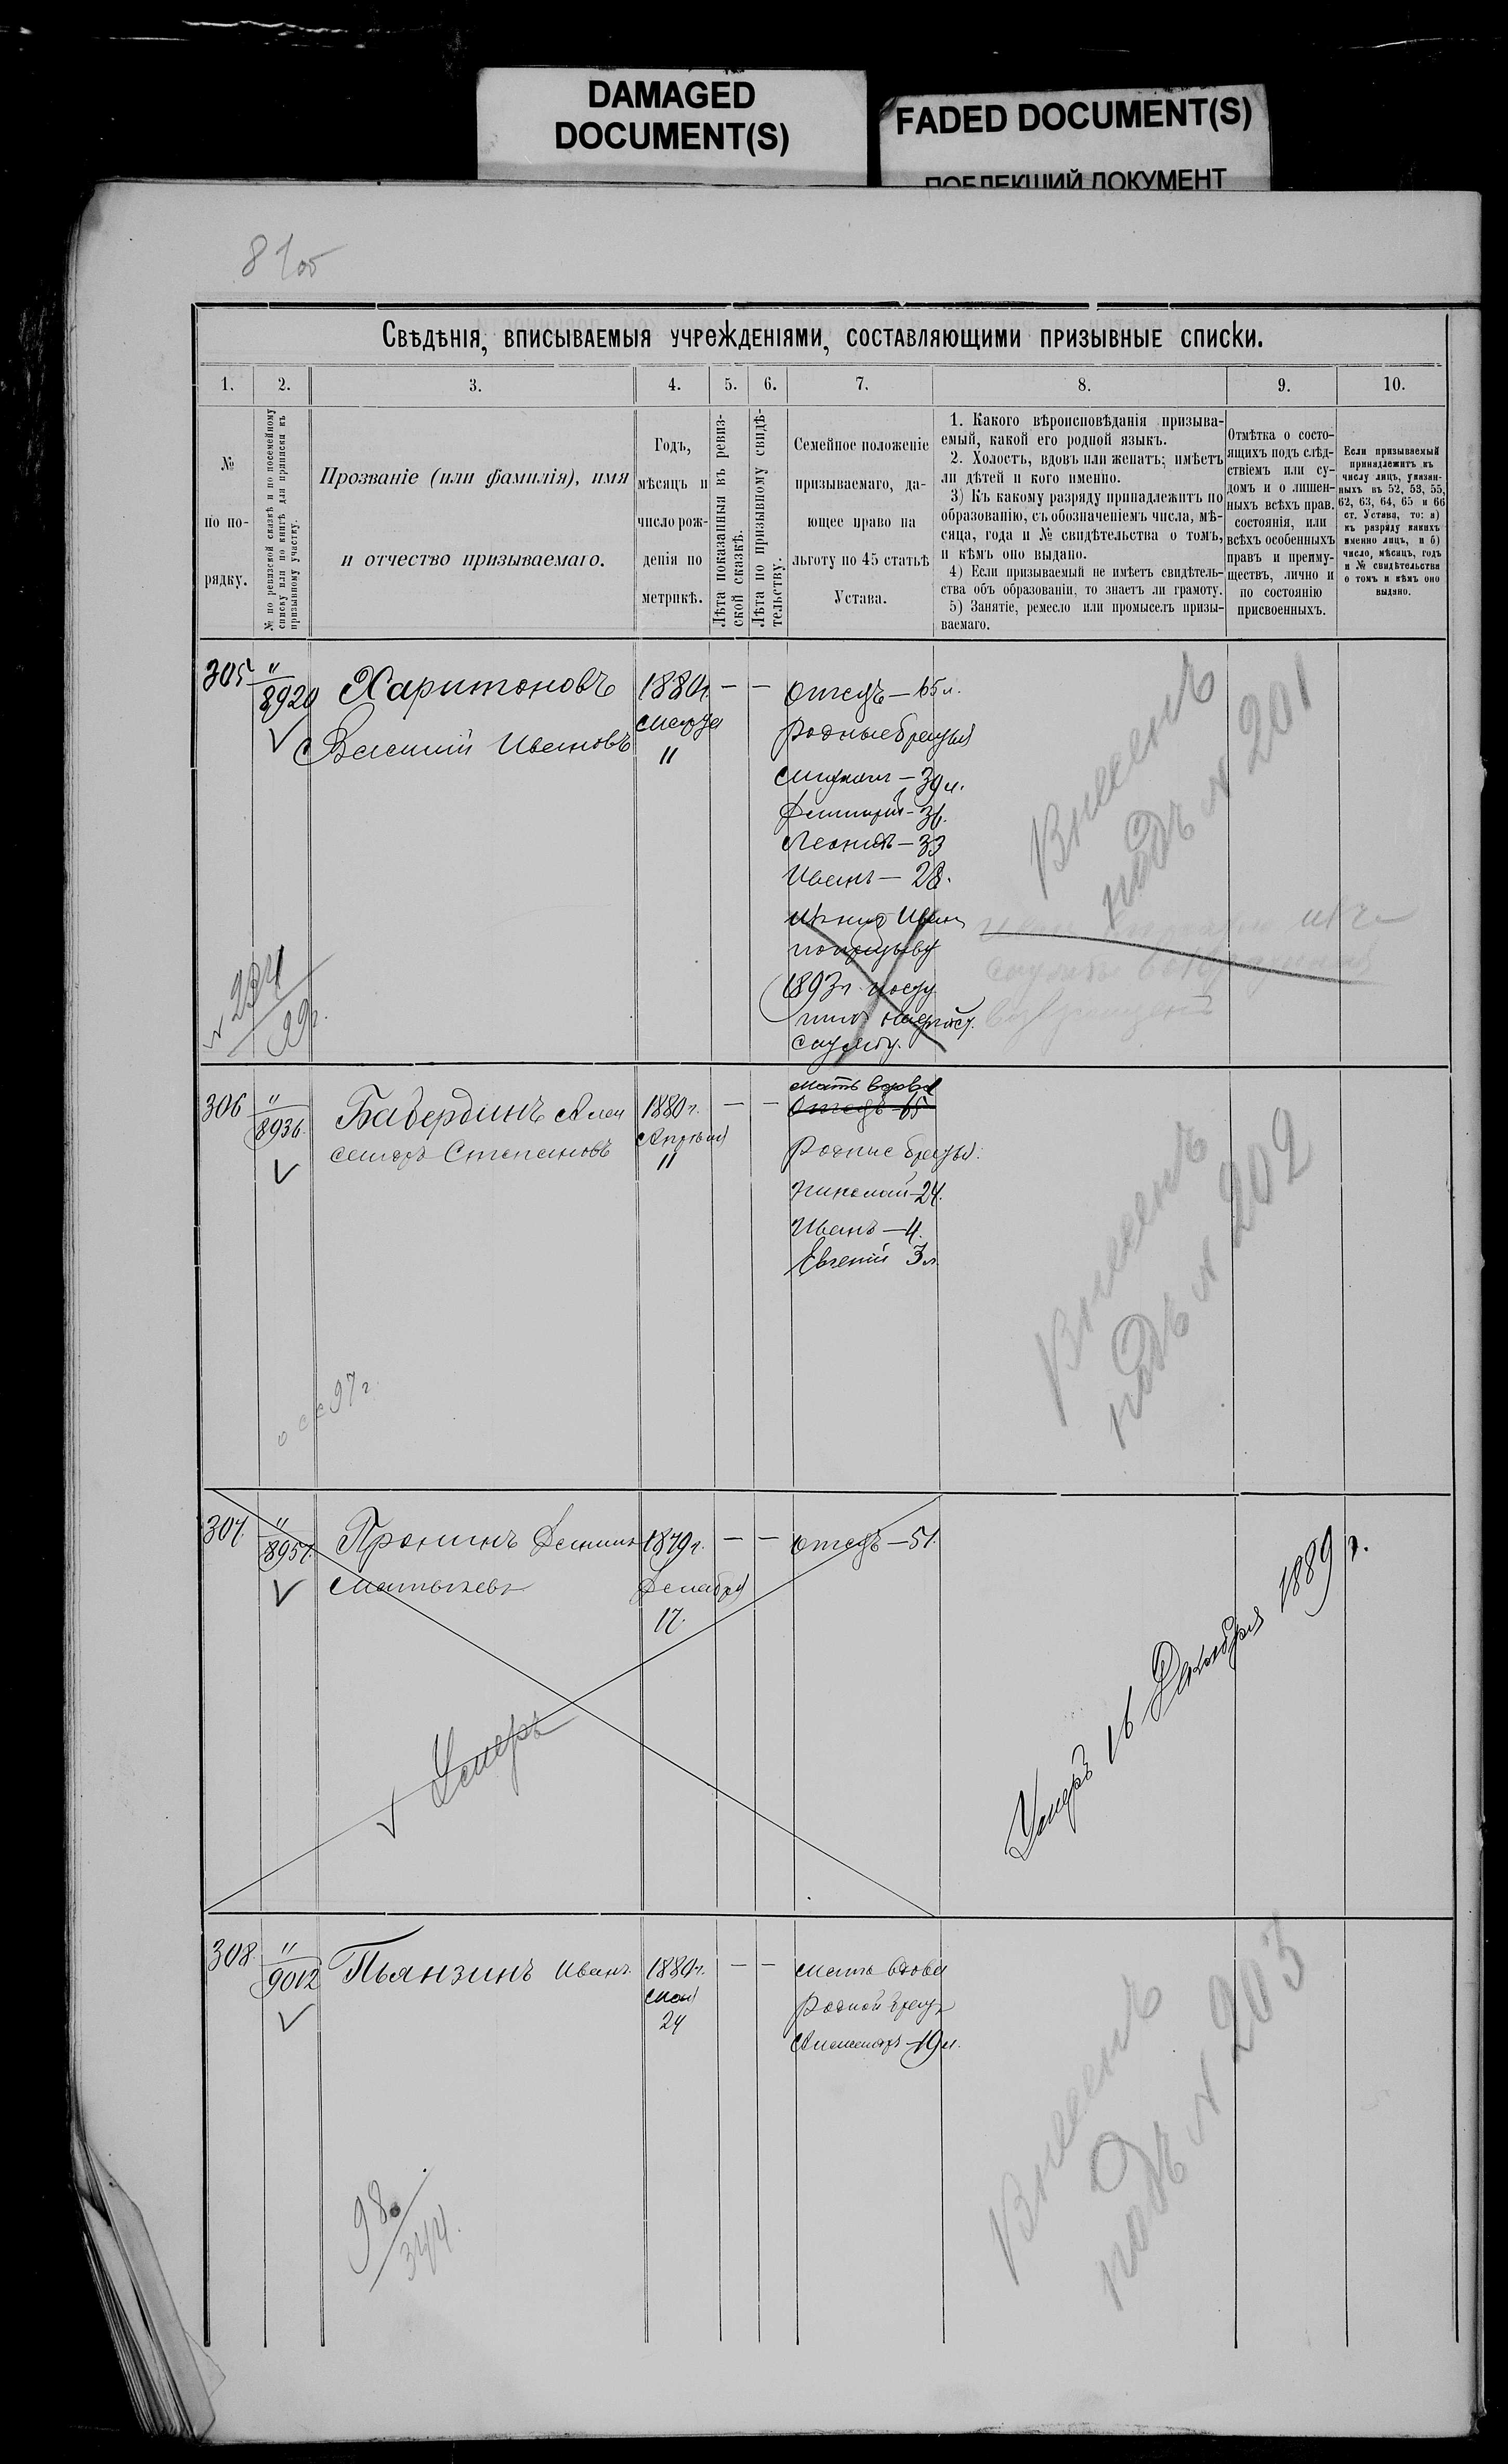 DAMAGED
DOCUMENT(S)
FADED DOCUMENT(S)
ПОБЛЕКШИЙ ДОКУМЕНТ
Свѣдѣнія, вписываемыя учрежденіями, составляющими призывные списки.
1. 2. 3. 4. 5. 6. 7. 8. 9. 10.
№
по по-
рядку.
№ по ревизской сказкѣ и по посемейному
списку или по книгѣ для приписки къ
призывному участку.
Прозваніе (или фамилія), имя
и отчество призываемаго.
Годъ,
мѣсяцъ и
число рож-
денія по
метрикѣ.
Лѣта показанныя въ ревиз-
ской сказкѣ.
Лѣта по призывному свидѣ-
тельству.
Семейное положеніе
призываемаго, да-
ющее право на
льготу по 45 статьѣ
Устава.
1. Какого вѣроисповѣданія призыва-
емый, какой его родной языкъ.
2. Холостъ, вдовъ или женатъ; имѣетъ
ли дѣтей и кого именно.
3) Къ какому разряду принадлежитъ по
образованію, съ обозначеніемъ числа, мѣ-
сяца, года и № свидѣтельства о томъ,
и кѣмъ оно выдано.
4) Если призываемый не имѣетъ свидѣтель-
ства объ образованіи, то знаетъ ли грамоту.
5) Занятіе, ремесло или промыселъ призы-
ваемаго.
Отмѣтка о состо-
ящихъ подъ слѣд-
ствіемъ или су-
домъ и о лишен-
ныхъ всѣхъ прав.
состоянія, или
всѣхъ особенныхъ
правъ и преиму-
ществъ, лично и
по состоянію
присвоенныхъ.
Если призываемый
принадлежитъ къ
числу лицъ, указан-
ныхъ въ 52, 53, 55,
62, 63, 64, 65 и 66
ст. Устава, то: а)
къ разряду какихъ
именно лицъ, и б)
число, мѣсяцъ, годъ
и № свидѣтельства
о томъ и кѣмъ оно
выдано.
305 "
8920
Харитоновъ
Василий Ивановъ
1880г.
Марта
"
— —
Отецъ — 65 л.
Родные братья
Михаил — 39 л.
Дмитрий — 36.
Леонидъ — 33
Иванъ — 28.
Иван
по призыву
1893г. посту
службу.
Внесенъ
подъ № 201
№ 254
99г.
306 "
8936.
Бабердинъ Алек
сандръ Степановъ
1880г.
Апрѣля
"
— —
Мать вдова
Отецъ — 65
Родные братья:
Николай — 24.
Иванъ — 4.
Евгений 3 л.
Внесенъ
подъ № 202
97 г.
307. "
8957.
Пронинъ
Матвѣевъ
1879г.
Декабря
17.
— —
Отецъ — 51.
Умеръ
Умеръ 16 Декабря 1889 г.
308. "
9012
Пьянзинъ Иванъ
1880г.
Мая
24
— —
Мать вдова
Родной братъ
Александръ — 19 л.
Внесенъ
подъ № 203
98
344.